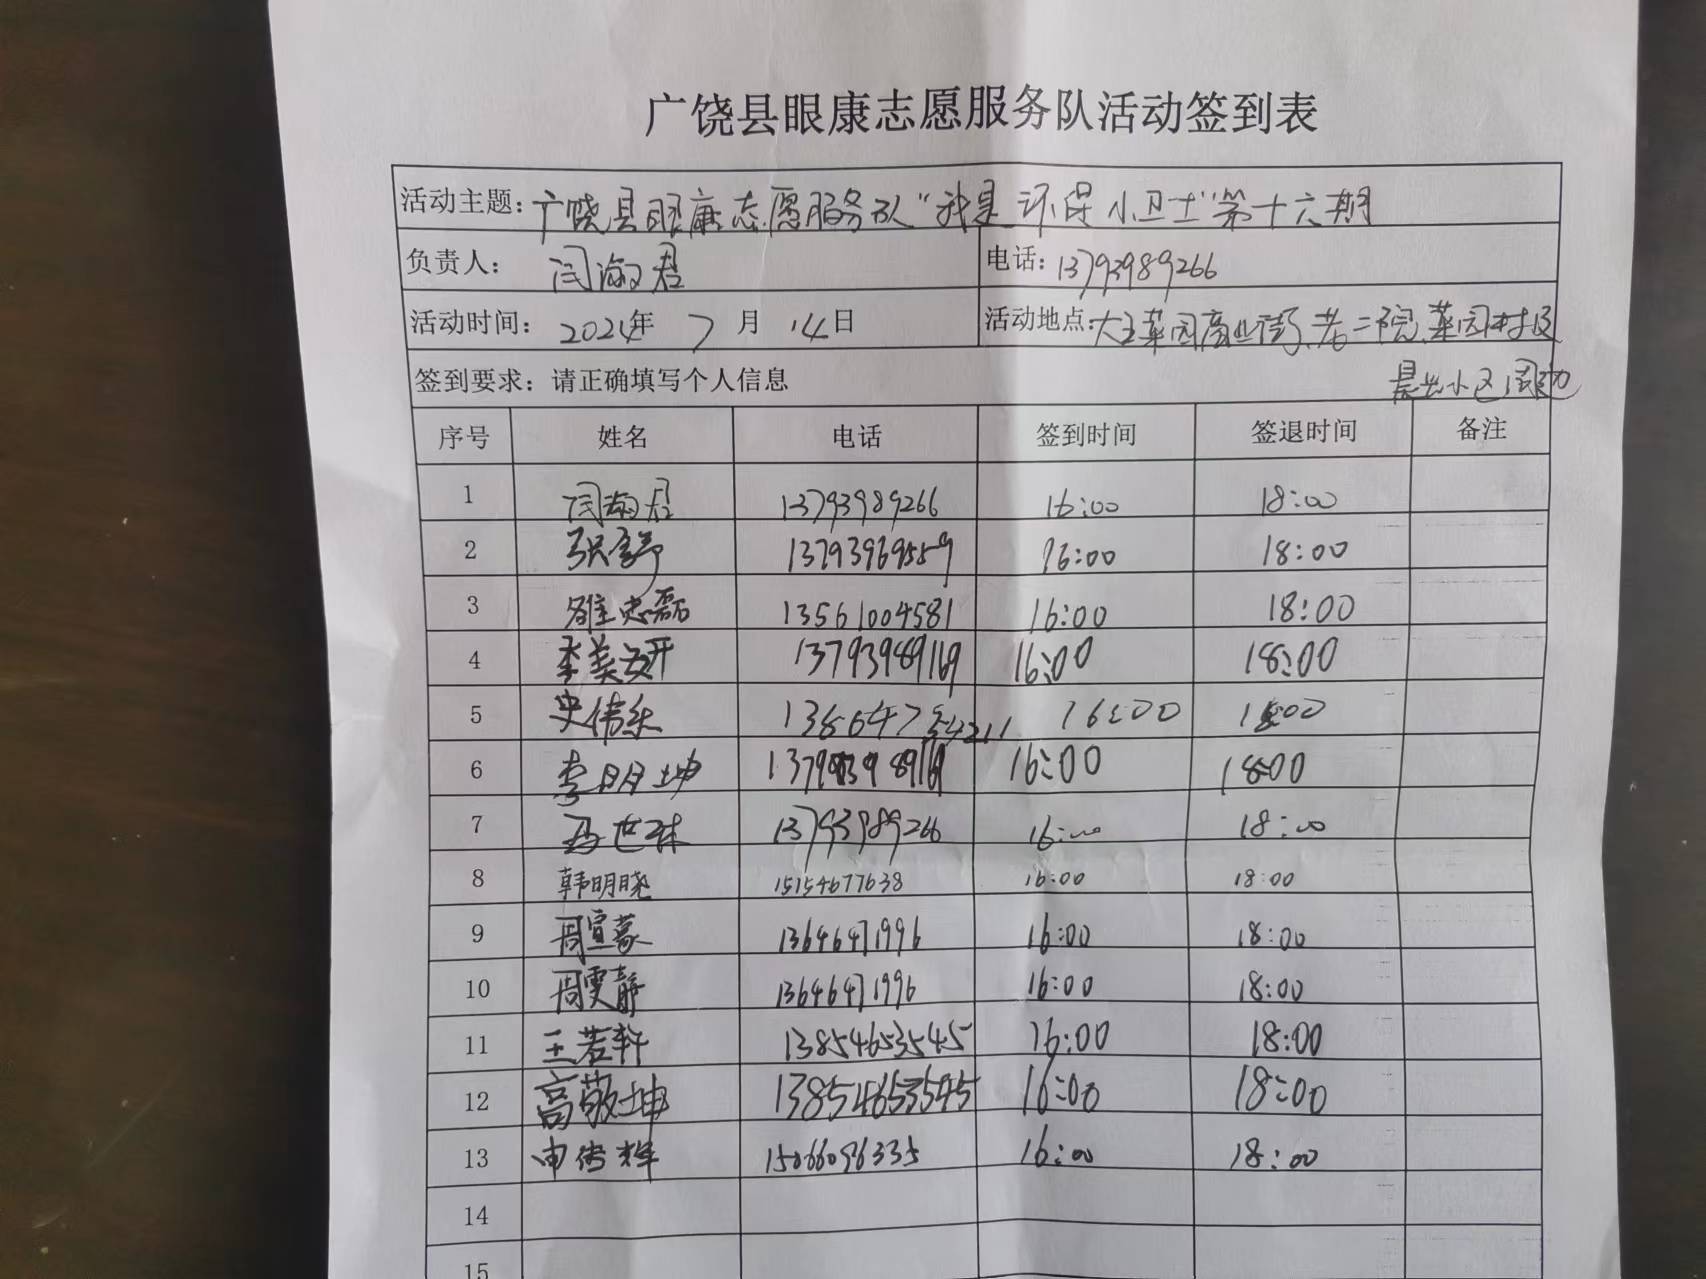 广饶县眼康志愿服务队活动签到表
活动主题：广饶县眼康志愿服务队“我是环保小卫士”第十六期
负责人：闫淑君 电话：13793989266
活动时间：2024年 7 月 14 日 活动地点：大王菜园商业街、老二院、菜园村及
签到要求：请正确填写个人信息 晨光小区周边
序号 姓名 电话 签到时间 签退时间 备注
1 闫淑君 13793989266 16:00 18:00
2 张舒 13793969559 16:00 18:00
3 雒忠磊 13561004581 16:00 18:00
4 李美妍 13793989169 16:00 18:00
5 史伟乐 16:00 18:00
6 李明坤 13793989169 16:00 18:00
7 冯世球 13793989266 16:00 18:00
8 韩明晓 15154677638 16:00 18:00
9 周宣蒙 13646471996 16:00 18:00
10 周雯静 13646471996 16:00 18:00
11 王若轩 13854653545 16:00 18:00
12 高敬坤 13854653545 16:00 18:00
13 申传辉 15066096335 16:00 18:00
14
15